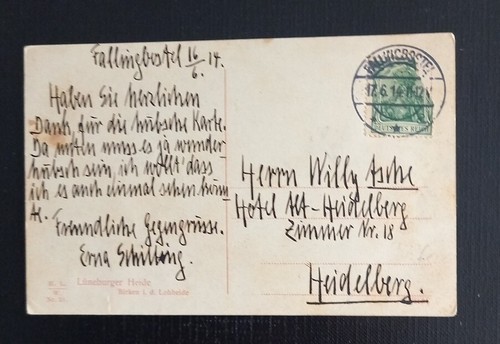 Fallingbostel 16/6. 14.
Haben Sie herzlichen
Dank, für die hübsche Karte.
Da unten muss es ja wunder
hübsch sein, ich wollt' dass
ich es auch einmal sehen könn
te.
Freundliche Gegengrüsse.
Erna Schilling.
Lüneburger Heide
Birken i. d. Lohheide
FALLINGBOSTEL
17.6.14
DEUTSCHES REICH
Herrn Willy Asche
Hotel Alt-Heidelberg
Zimmer Nr. 18
Heidelberg.